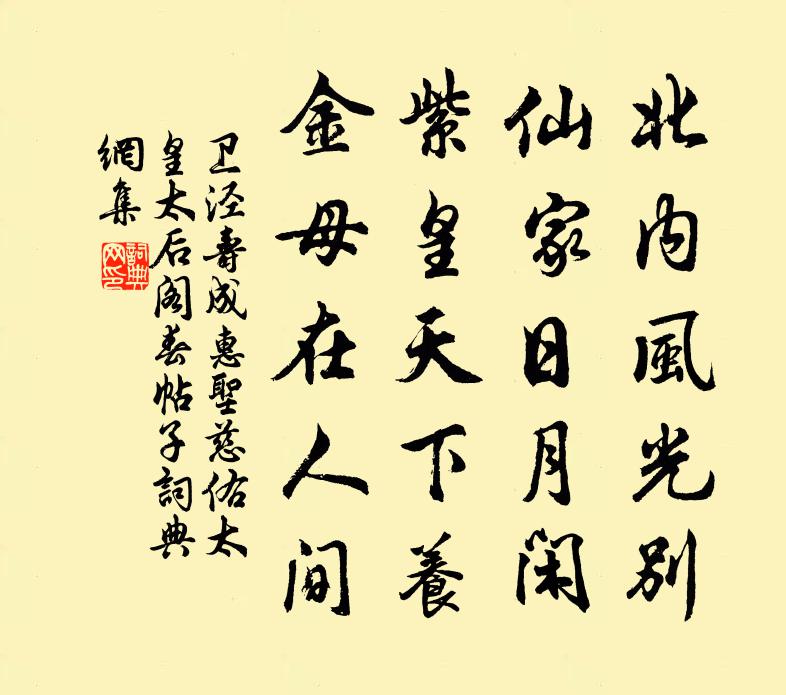 北内風光别
仙家日月閑
紫皇天下養
金母在人間
卫泾壽成惠聖慈佑太
皇太后阁春帖子詞典
網集
詞典
网印